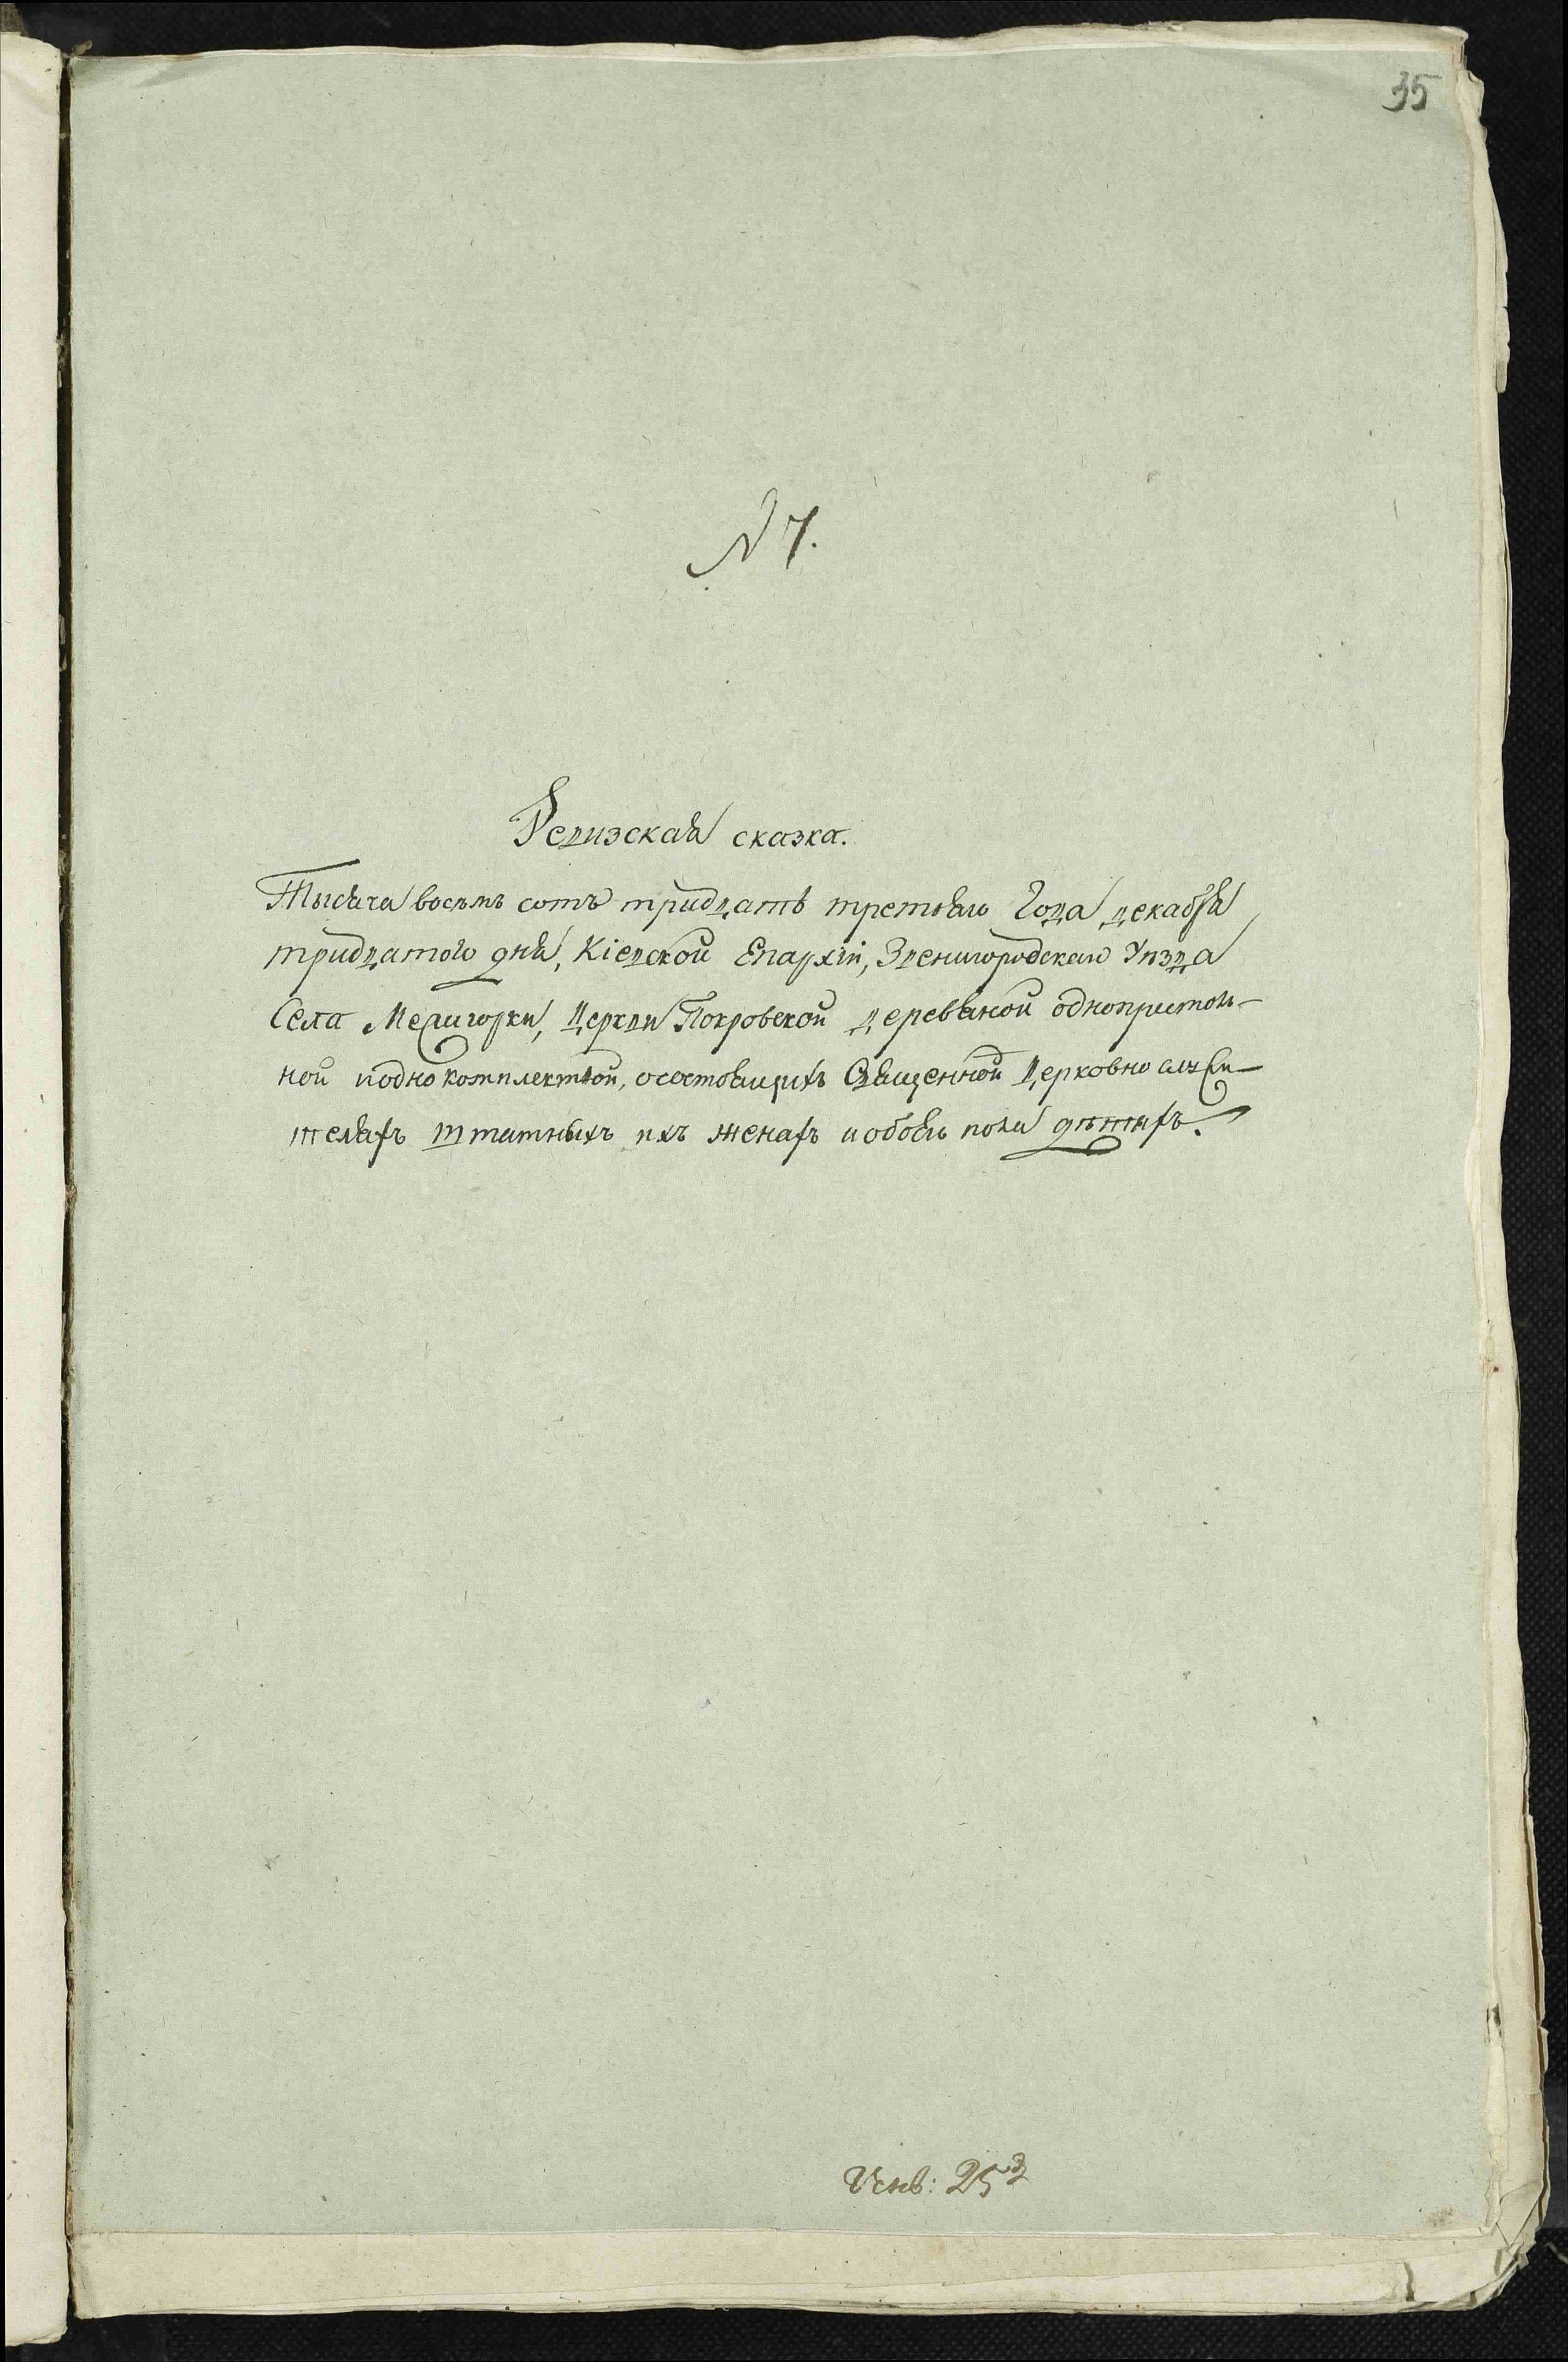 35
№ 7.
Ревизская сказка.
Тысяча восемь сотъ тридцать третьяго Года декабря
тридцатого дня, Кіевской Епархіи, Звенигородскаго Уѣзда
Села Мелигорки, Церкви Покровской деревяной однопристоль-
ной иоднокомплектной, осостоящихъ Священной Церковно служи-
теляхъ штатныхъ ихъ женахъ иобоего пола дѣтяхъ.
25